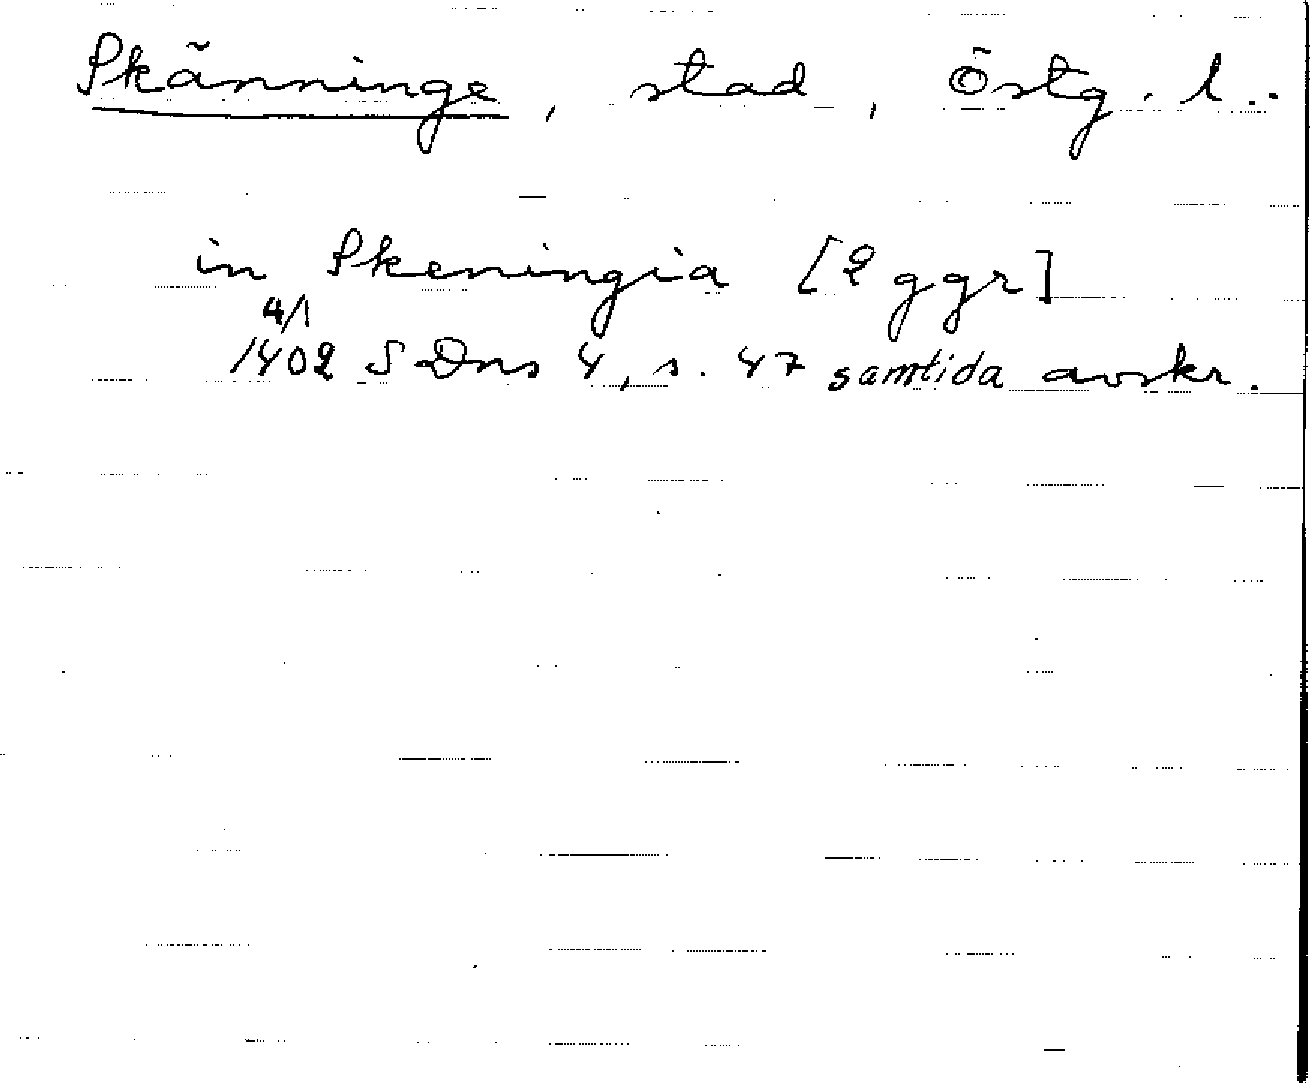 Skänninge, stad, Östg. l..
in Skeningia [2 ggr]
4/1
1402 SDns 4, s. 47 samtida avskr.